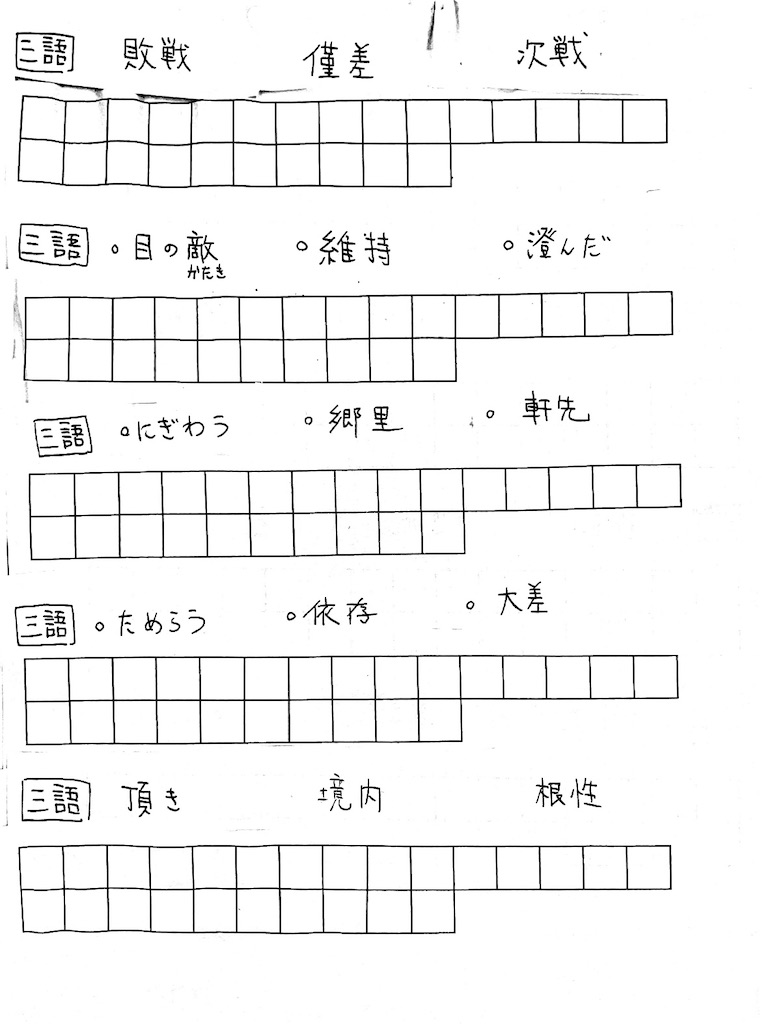 三語 敗戦 僅差 次戦
三語 。目の敵 。維持 。澄んだ
かたき
三語 。にぎわう 。郷里 。軒先
三語 。ためらう 。依存 。大差
三語 頂き 境内 根性